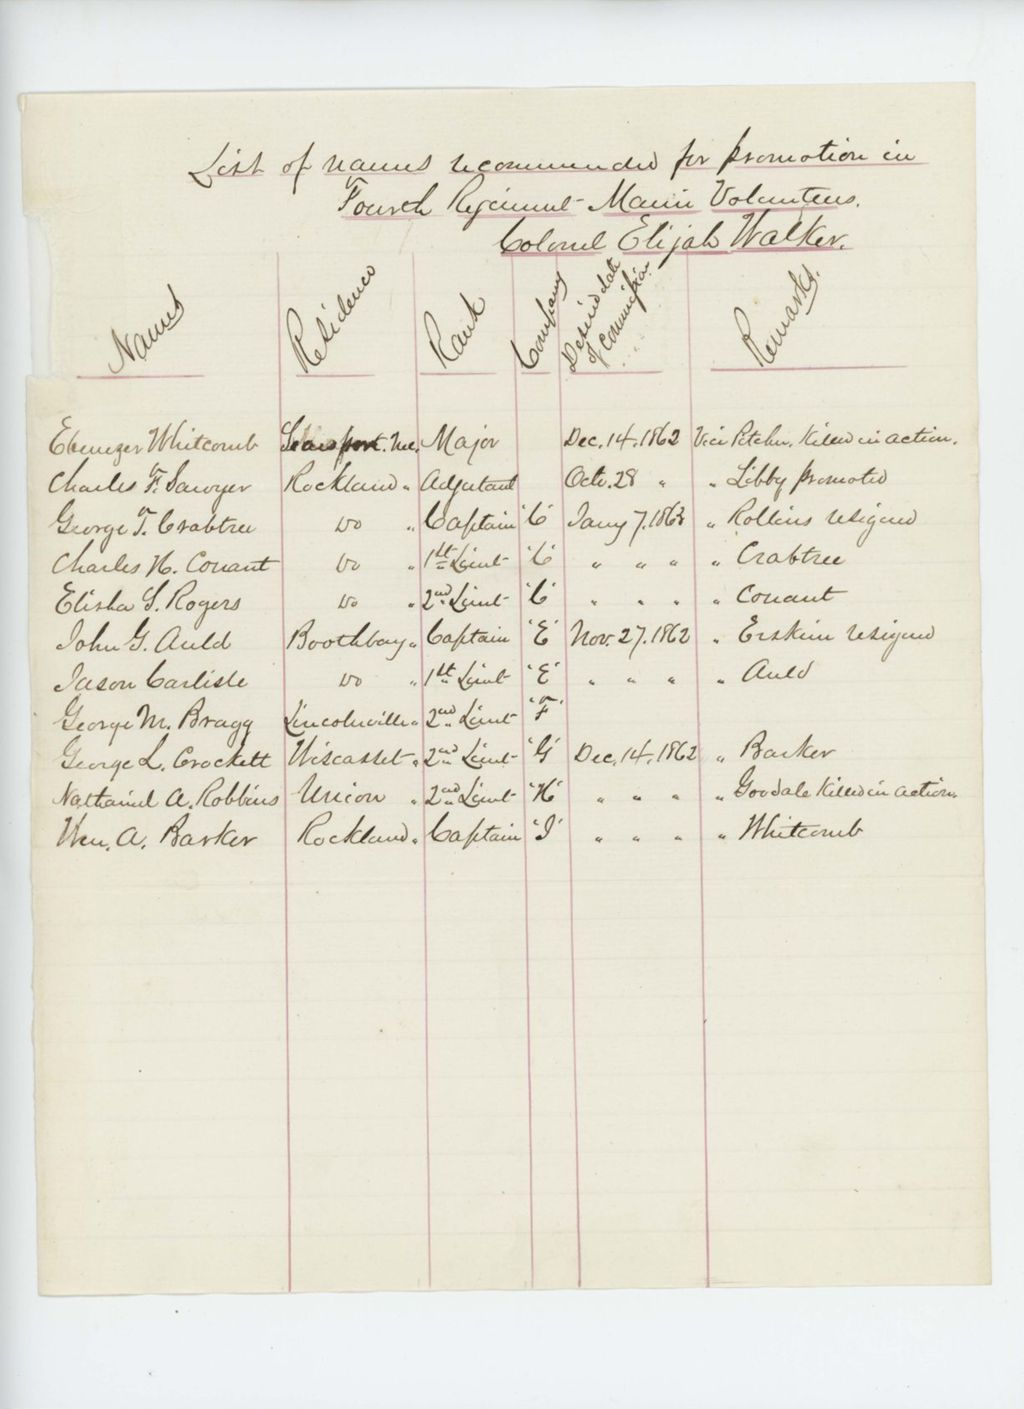 List of names recommended for promotion in
Fourth Regiment Maine Volunteers.
Colonel Elijah Walker.
Names Residence Rank Company Desired date of commission Remarks.
Ebenezer Whitcomb Searsport. Me. Major Dec. 14. 1862 Vice Pitcher. Killed in action.
Charles F. Sawyer Rockland " Adjutant Octo. 28 " " Libby promoted
George T. Crabtree do " Captain 'C' Jany 7. 1863 " Rollins resigned
Charles H. Conant do " 1st Lieut 'C' " " " " Crabtree
Elisha S. Rogers do " 2nd Lieut 'C' " " " " Conant
John G. Auld Boothbay " Captain 'E' Nov. 27. 1862 " Erskine resigned
Jason Carlisle do " 1st Lieut 'E' " " " " Auld
George M. Bragg Lincolnville " 2nd Lieut 'F'
George L. Crockett Wiscasset " 2nd Lieut 'G' Dec. 14. 1862 " Barker
Nathaniel A. Robbins Union " 2nd Lieut 'H' " " " " Goodale Killed in action
Wm. A. Barker Rockland " Captain 'I' " " " " Whitcomb